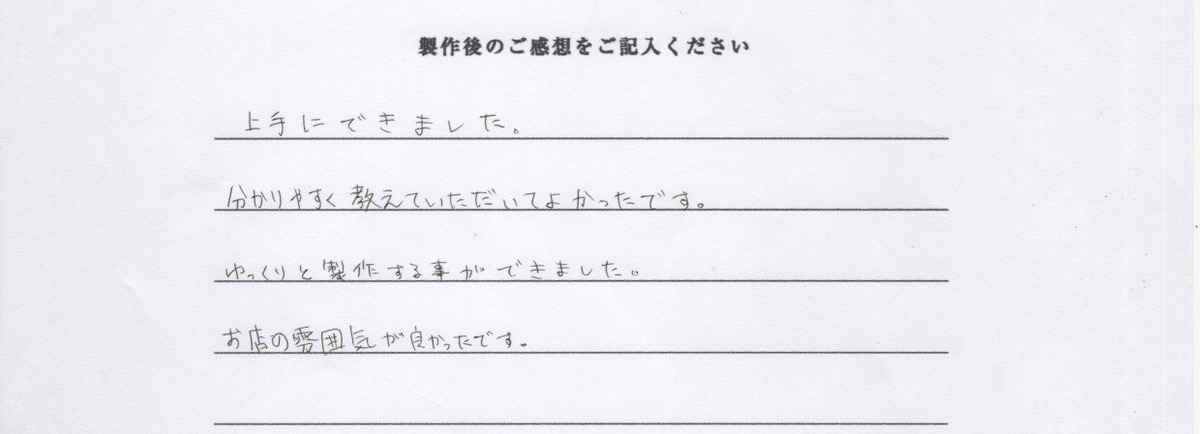 製作後のご感想をご記入ください
上手にできました。
分かりやすく教えていただいてよかったです。
ゆっくりと製作する事ができました。
お店の雰囲気が良かったです。